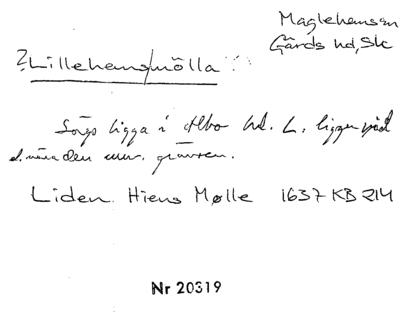 Maglehems sn
Gärds hd, Sk
?Lillehems/mölla
Sägs ligga i Albo hd. L. ligger på
d. nära den nuv. gränsen.
Liden Hiens Mølle 1637 KB 214
Nr 20319